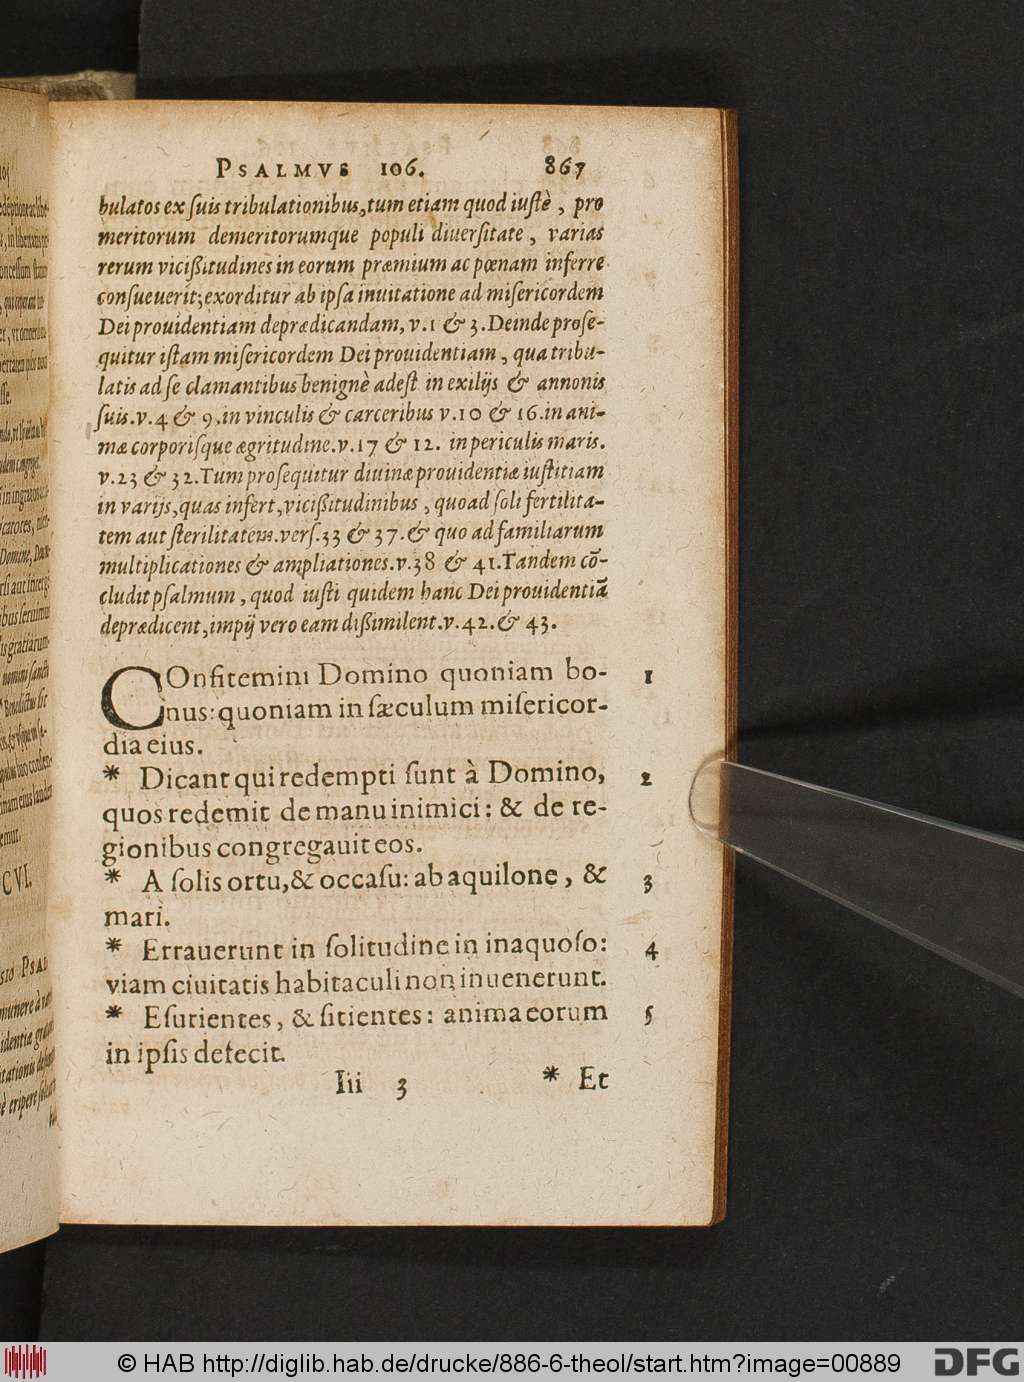 PSALMVS 106. 867
bulatos ex ſuis tribulationibus, tum etiam quod iuſtè, pro
meritorum demeritorumque populi diuerſitate, varias
rerum viciſſitudines in eorum præmium ac pœnam inferre
conſueuerit; exorditur ab ipſa inuitatione ad miſericordem
Dei prouidentiam deprædicandam, v.1 & 3. Deinde proſe-
quitur iſtam miſericordem Dei prouidentiam, qua tribu-
latis ad ſe clamantibus benignè adeſt in exilijs & annonis
ſuis. v. 4 & 9. in vinculis & carceribus v.10 & 16. in ani-
mæ corporiſque ægritudine. v.17 & 12. in periculis maris.
v.23 & 32. Tum proſequitur diuinæ prouidentiæ iuſtitiam
in varijs, quas infert, viciſſitudinibus, quoad ſoli fertilita-
tem aut ſterilitatem. verſ. 33 & 37. & quo ad familiarum
multiplicationes & ampliationes. v.38 & 41. Tandem cō-
cludit pſalmum, quod iuſti quidem hanc Dei prouidentiā
deprædicent, impij vero eam diſſimilent. v. 42. & 43.
COnfitemini Domino quoniam bo- 1
nus: quoniam in ſæculum miſericor-
dia eius.
* Dicant qui redempti ſunt à Domino, 2
quos redemit de manu inimici: & de re-
gionibus congregauit eos.
* A ſolis ortu, & occaſu: ab aquilone, & 3
mari.
* Errauerunt in ſolitudine in inaquoſo: 4
viam ciuitatis habitaculi non inuenerunt.
* Eſurientes, & ſitientes: anima eorum 5
in ipſis defecit.
Iii 3 * Et
© HAB http://diglib.hab.de/drucke/886-6-theol/start.htm?image=00889
DFG